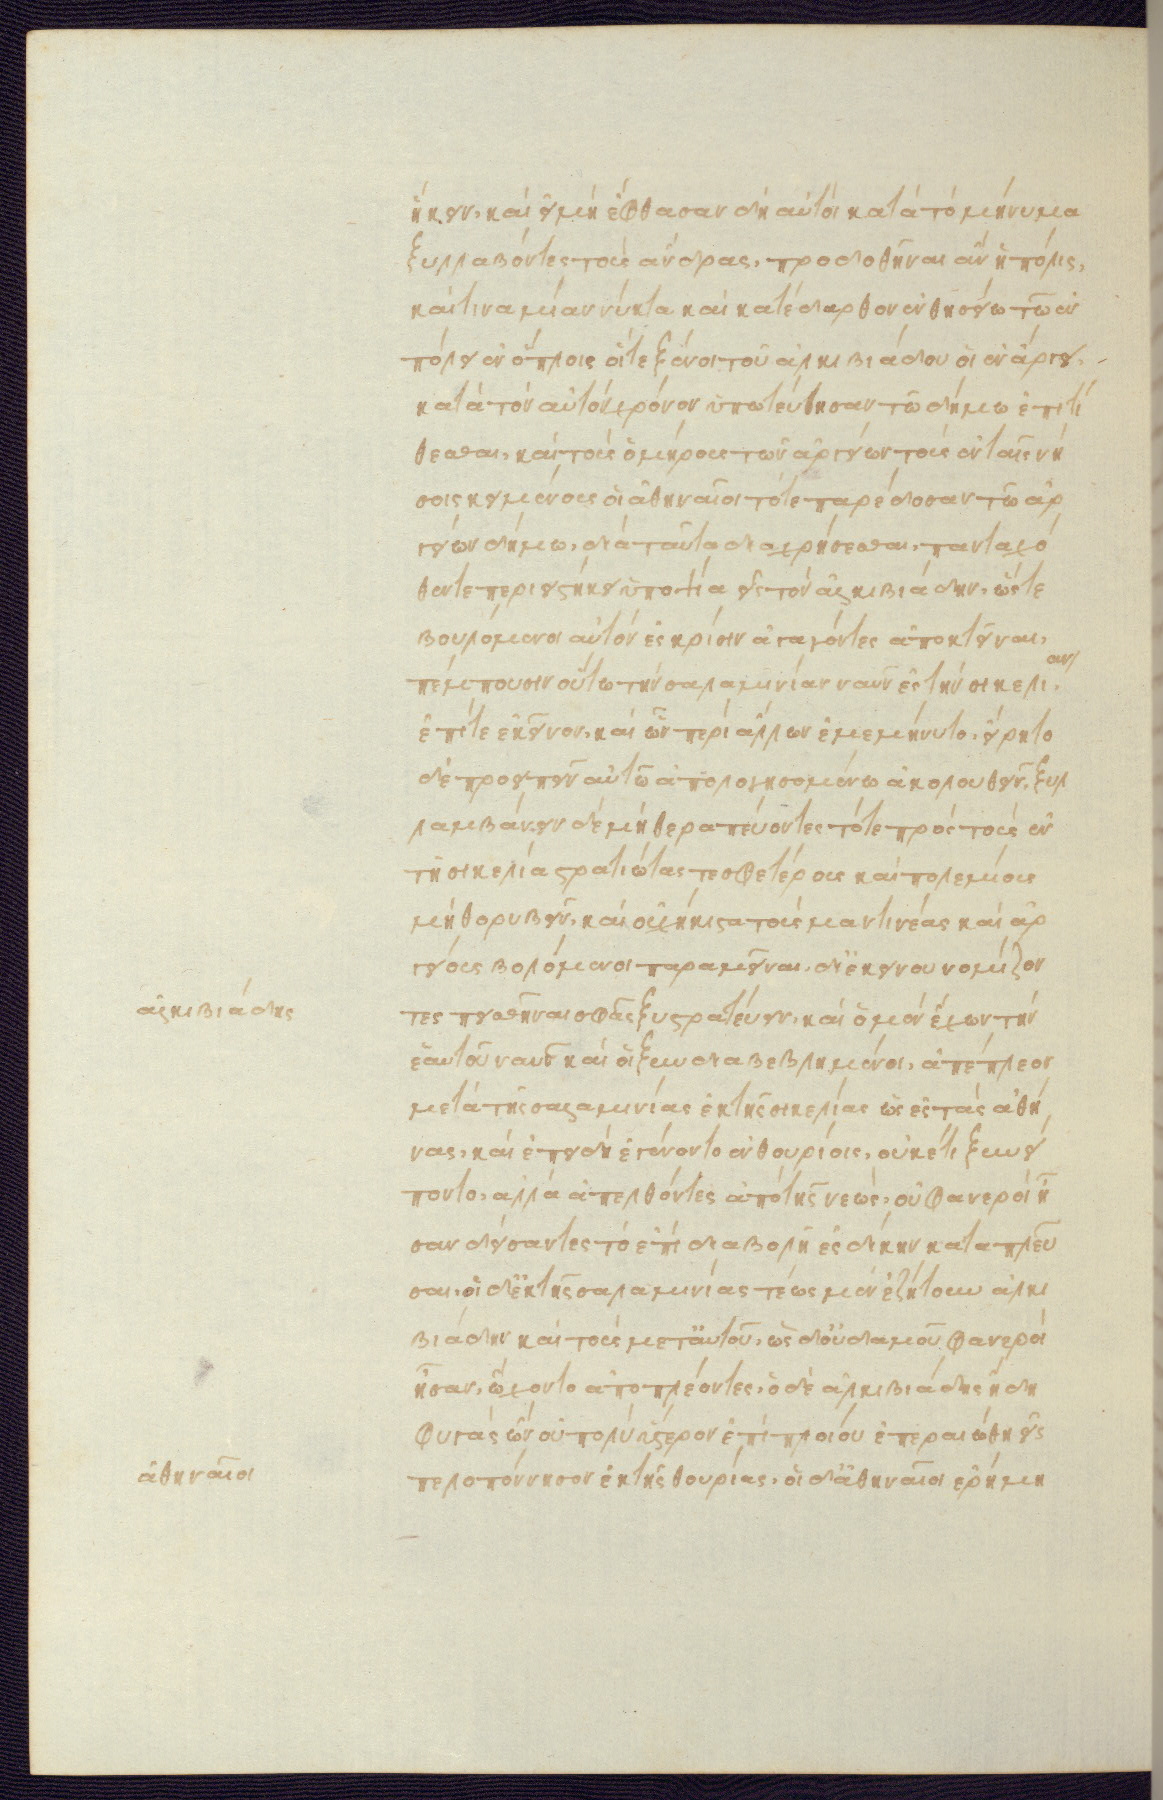 ἥκειν, καὶ εἰ μὴ ἔφθασαν δὴ αὐτοὶ κατὰ τὸ μήνυμα
ξυλλαβόντες τοὺς ἄνδρας, προδοθῆναι ἂν ἡ πόλις,
καί τινα μίαν νύκτα καὶ κατέδαρθον ἐν θησείω τῶ ἐν
πόλει ἐν ὅπλοις οἵ τε ξένοι τοῦ ἀλκιβιάδου οἱ ἐν ἄργει,
κατὰ τὸν αὐτὸν χρόνον ὑπωτεύθησαν τῶ δήμω ἐπιτί
θεσθαι, καὶ τοὺς ὁμήρους τῶν ἀργείων τοὺς ἐν ταῖς νή
σοις κειμένους οἱ ἀθηναῖοι τότε παρέδοσαν τῶ ἀρ
γείων δήμω, διὰ ταῦτα διαχρήσεσθαι, πανταχό
θεν τε περιειστήκει ὑποψία εἰς τὸν ἀλκιβιάδην, ὥστε
βουλόμενοι αὐτὸν ἐς κρίσιν ἀγαγόντες ἀποκτεῖναι,
πέμπουσιν οὕτω τὴν σαλαμινίαν ναῦν ἐς τὴν σικελίαν,
ἐπί τε ἐκεῖνον, καὶ ὧν περὶ ἄλλων ἐμεμήνυτο, εἴρητο
δὲ προειπεῖν αὐτῶ ἀπολογησομένω ἀκολουθεῖν, ξυλ
λαμβάνειν δὲ μὴ θεραπεύοντες τότε πρὸς τοὺς ἐν
τῆ σικελία στρατιώτας τε σφετέρους καὶ πολεμίους
μὴ θορυβεῖν, καὶ οὐχ ἥκιστα τοὺς μαντινέας καὶ ἀρ
γείους βολόμενοι παραμεῖναι, δι' ἐκείνου νομίζον
ἀλκιβιάδης
τες πεισθῆναι σφᾶς ξυστρατεύειν, καὶ ὁ μὲν ἔχων τὴν
ἑαυτοῦ ναῦν καὶ οἱ ξυνδιαβεβλημένοι, ἀπέπλεον
μετὰ τῆς σαλαμινίας ἐκ τῆς σικελίας ὡς ἐς τὰς ἀθή
νας, καὶ ἐπειδὴ ἐγένοντο ἐν θουρίοις, οὐκέτι ξυνεί
ποντο, ἀλλὰ ἀπελθόντες ἀπὸ τῆς νεὼς, οὐ φανεροὶ ἦ
σαν δείσαντες τὸ ἐπὶ διαβολῆ ἐς δίκην καταπλεῦ
σαι, οἱ δ' ἐκ τῆς σαλαμινίας τέως μὲν ἐζήτουν ἀλκι
βιάδην καὶ τοὺς μετ' αὐτοῦ, ὡς δ' οὐδαμοῦ φανεροὶ
ἦσαν, ὤχοντο ἀποπλέοντες, ὁ δὲ ἀλκιβιάδης ἤδη
φυγὰς ὢν οὐ πολὺ ὕστερον ἐπὶ πλοίου ἐπεραιώθη εἰς
ἀθηναῖοι
πελοπόννησον ἐκ τῆς θουρίας, οἱ δ' ἀθηναῖοι ἐρήμη